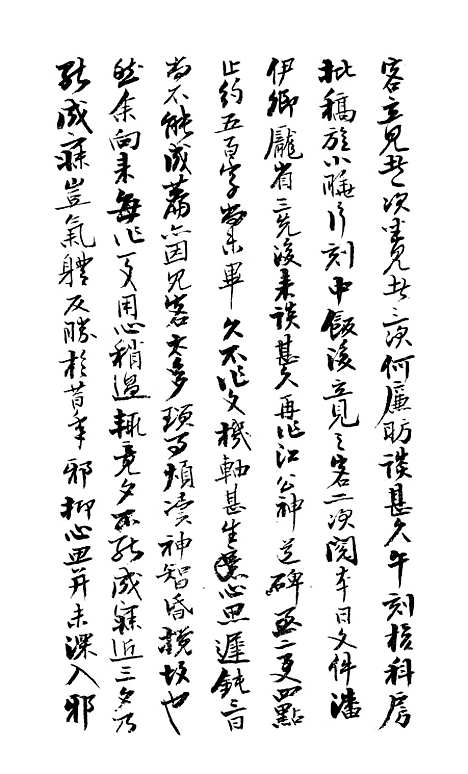 客立見者一次坐見者三次何廉昉談甚久午刻核科房
批稿旋小睡片刻中飯後立見之客二次閱本日文件潘
伊卿龐省三先後來談甚久再作江公神道碑至二更四點
止約五百字尚未畢久不作文機軸甚生心思遲鈍二日
尚不能成篇亦因見客太多瑣事煩瀆神智昏競故也
然余向來每作文用心稍過輒竟夕不能成寐近三夕乃
能成寐豈氣體反勝於昔年邪抑心思并未深入邪